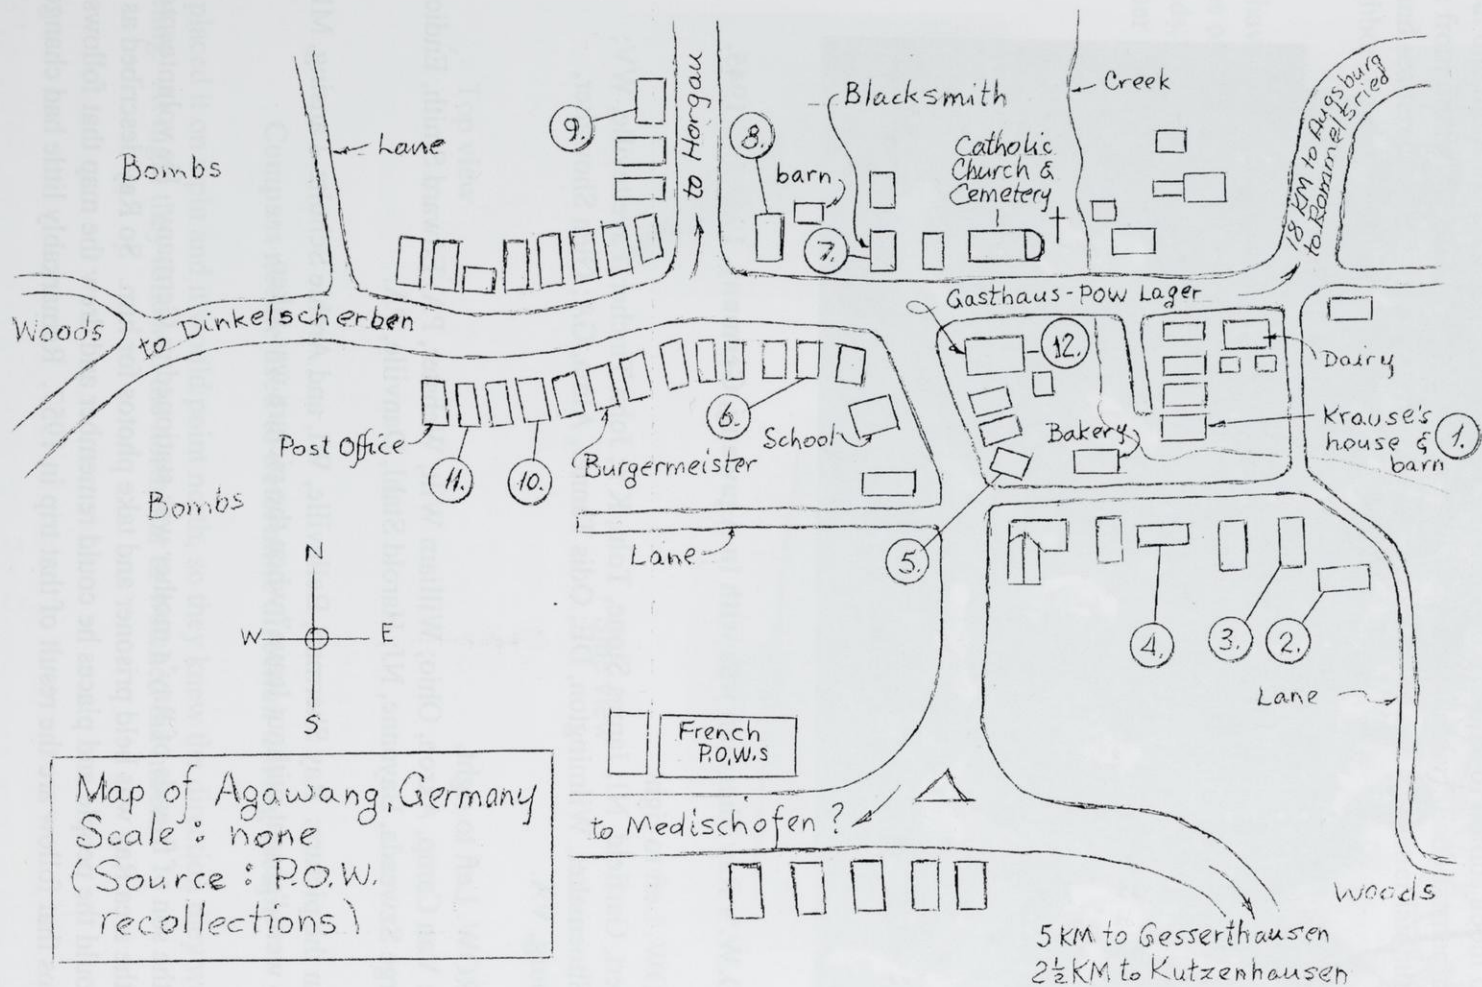 Bombs
Lane
9.
to Horgau
8.
barn
Blacksmith
7.
Catholic
Church &
Cemetery
Creek
18 KM to Augsburg
to Rommelsried
Woods
to Dinkelscherben
Gasthaus-POW Lager
12.
Dairy
Krause's
house &
barn
1.
Bakery
Post Office
11.
10.
Burgermeister
6.
School
Bombs
Lane
5.
4.
3.
2.
Lane
N
W
E
S
French
P.O.W.s
to Medischofen ?
Woods
5 KM to Gesserthausen
2½ KM to Kutzenhausen
Map of Agawang, Germany
Scale : none
(Source : P.O.W.
recollections)